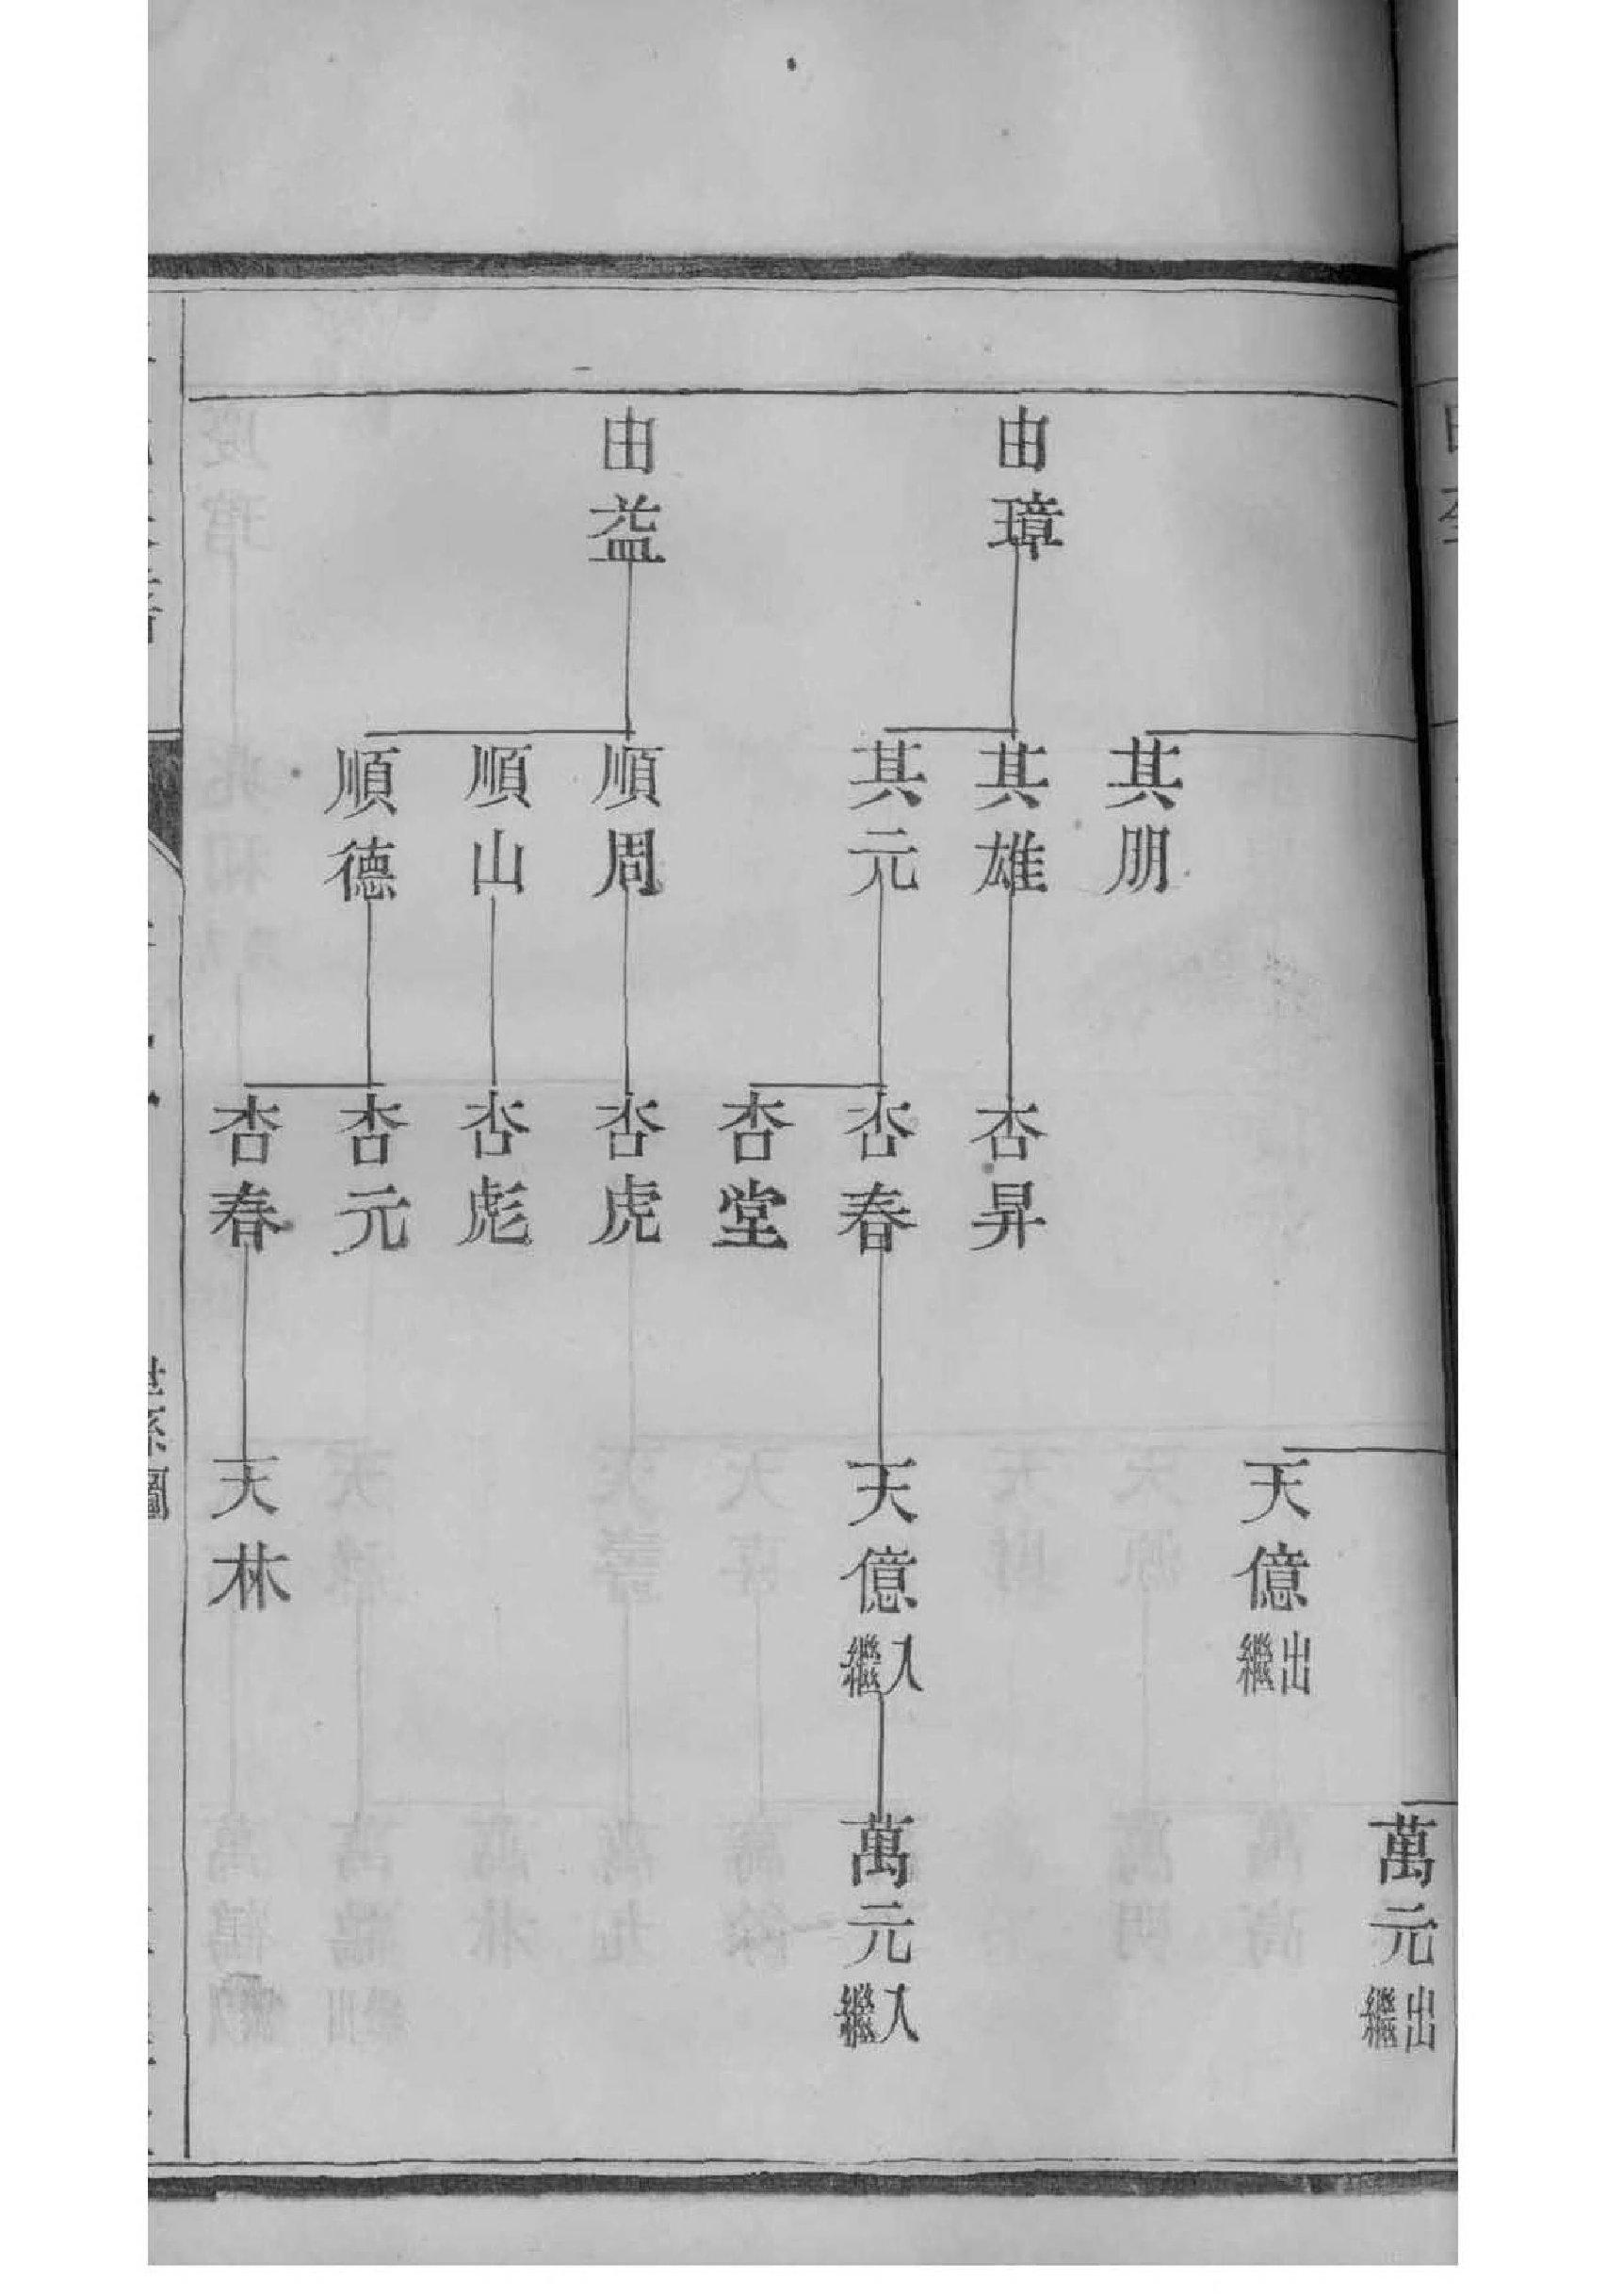 萬元出繼
天億出繼
其朋
由璋
其雄
杏昇
其元
杏春
天億入繼
萬元入繼
杏堂
由益
順周
杏虎
順山
杏彪
順德
杏元
杏春
天林
世系圖